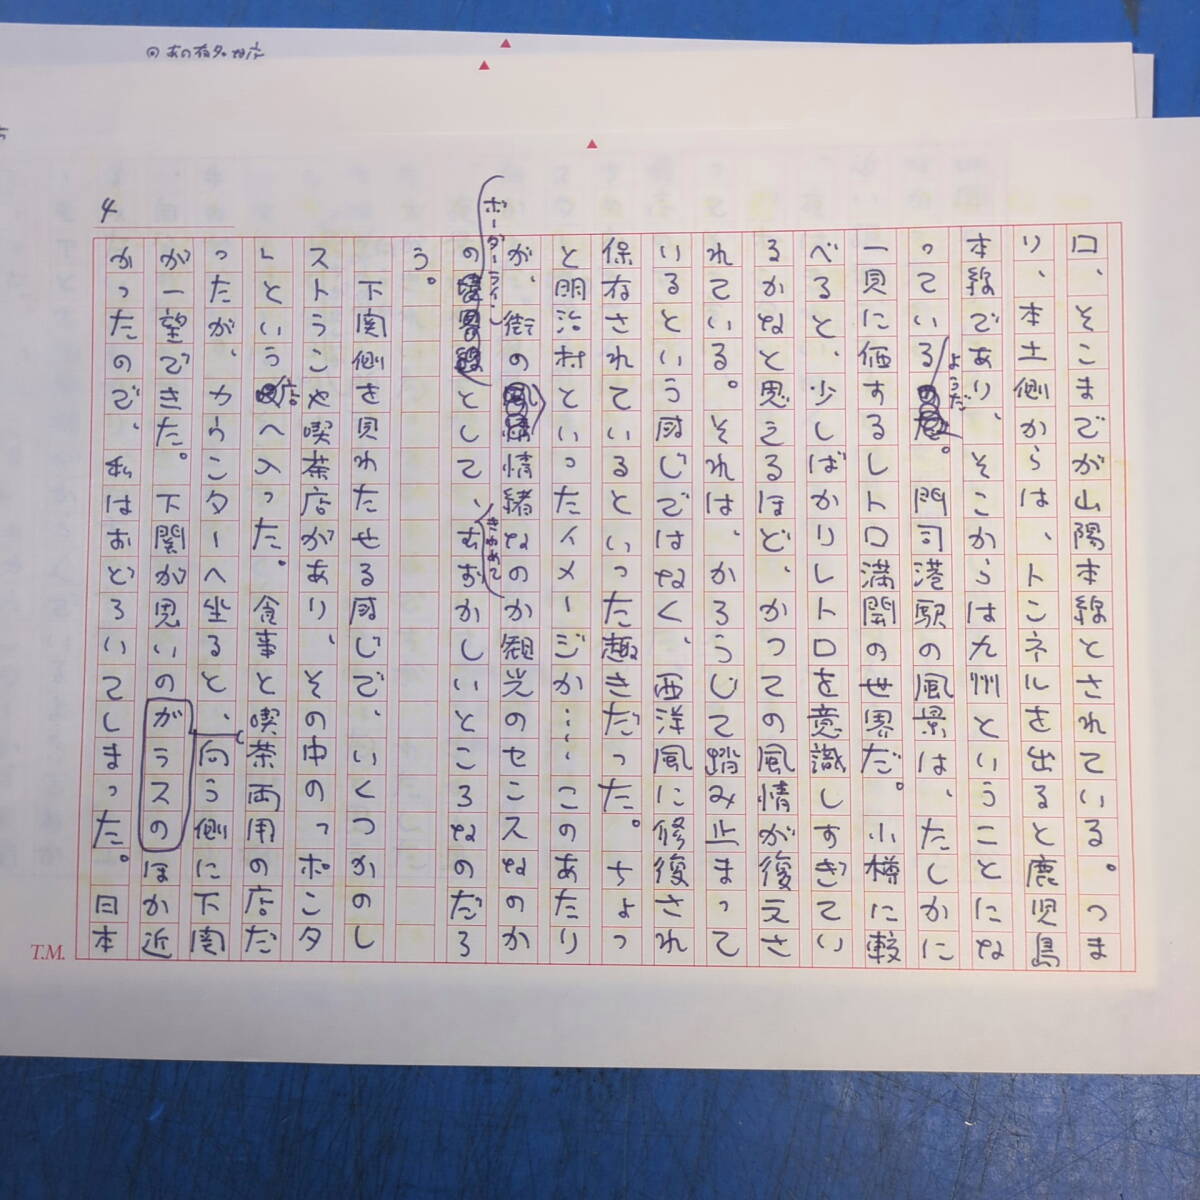 4
口、そこまでが山陽本線とされている。つま
り、本土側からは、トンネルを出ると鹿児島
本線であり、そこからは九州ということにな
っているようだ。門司港駅の風景は、たしかに
一見に価するレトロ満開の世界だ。小樽に較
べると、少しばかりレトロを意識しすぎてい
るかなと思えるほど、かつての風情が復元さ
れている。それは、かろうじて踏み止まって
いるという感じではなく、西洋風に修復され
保存されているといった趣きだった。ちょっ
と明治村といったイメージか……このあたり
が、街の情緒なのか観光のセンスなのか
のボーダーラインとして、きわめてむずかしいところなのだろ
う。
下関側を見わたせる感じで、いくつかのレ
ストランや喫茶店があり、その中の〝ポンタ
〟という店へ入った。食事と喫茶両用の店だ
ったが、カウンターへ坐ると、向う側に下関
が一望できた。下関が思いのがラスのほか近
かったので、私はおどろいてしまった。日本
T.M.